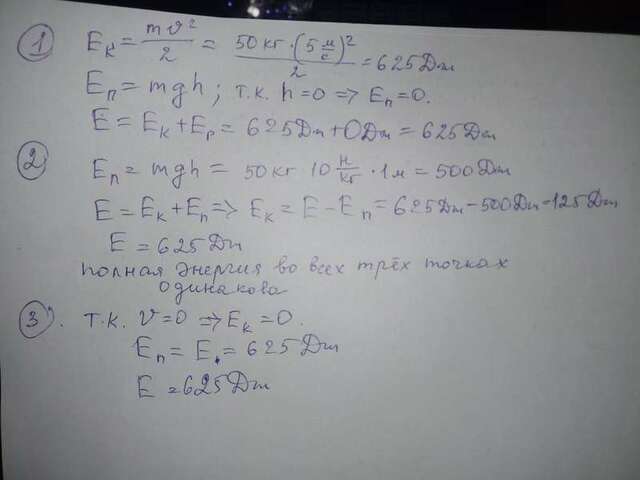 1 Eк = mv²/2 = 50 кг·(5 м/с)²/2 = 625 Дж
Eп = mgh; т.к. h=0 => Eп=0.
E = Eк + Ep = 625 Дж + 0 Дж = 625 Дж
2 Eп = mgh = 50 кг 10 Н/кг · 1 м = 500 Дж
E = Eк + Eп => Eк = E - Eп = 625 Дж - 500 Дж - 125 Дж
E = 625 Дж
полная энергия во всех трёх точках
одинакова
3. т.к. V=0 => Eк = 0.
Eп = E. = 625 Дж
E = 625 Дж